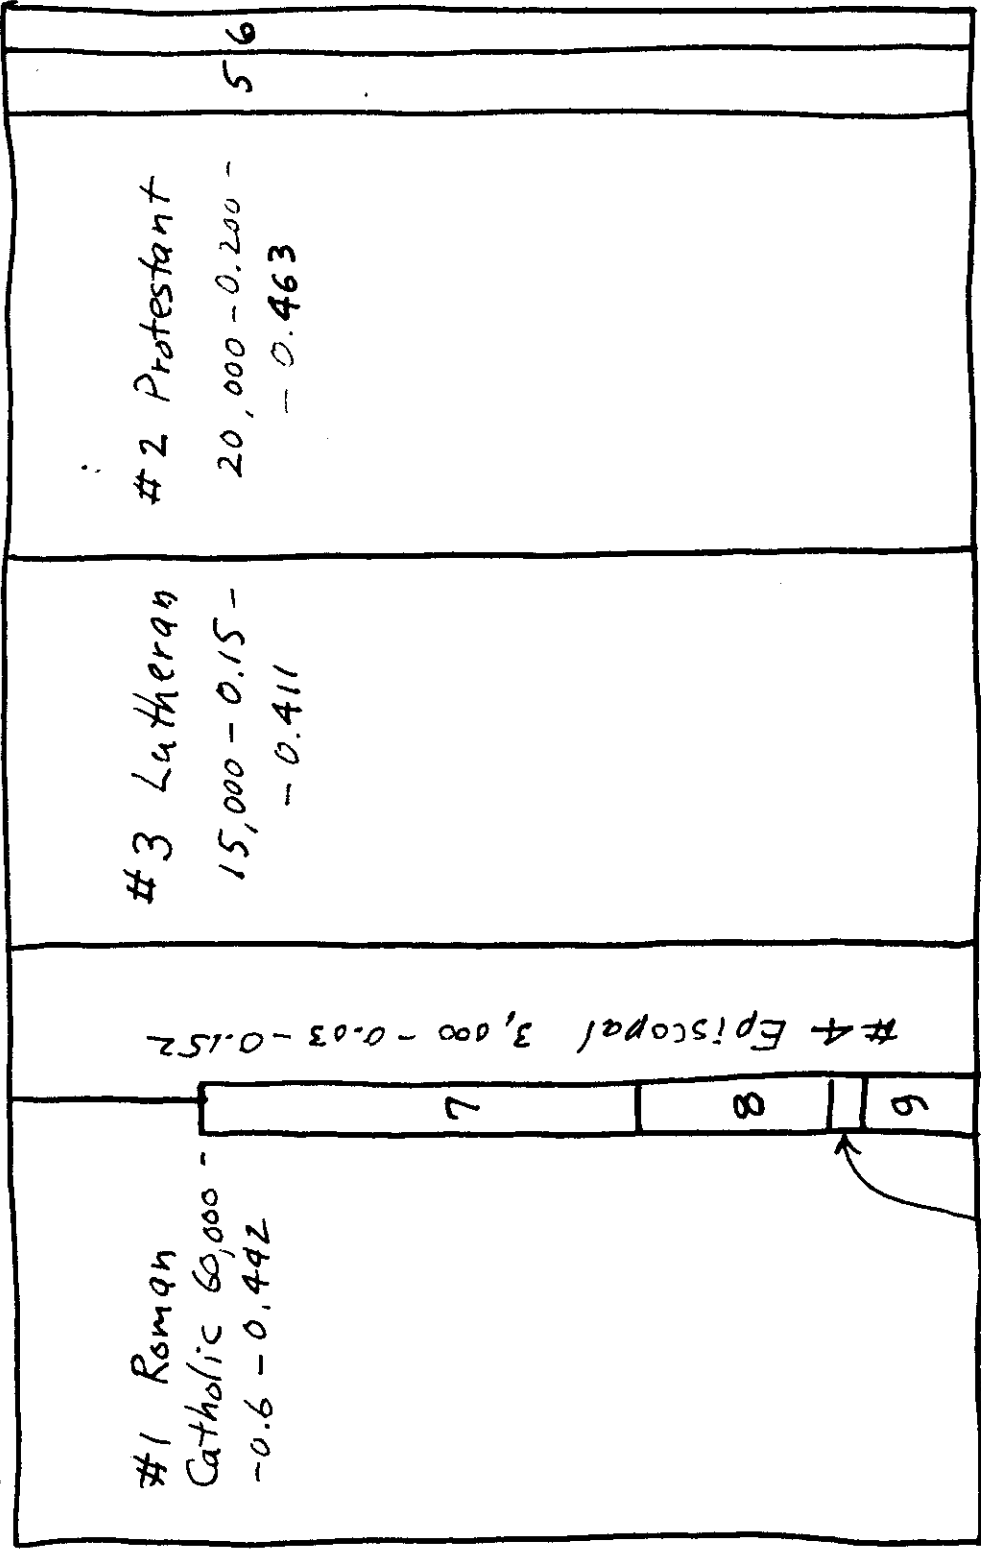 #1 Roman
Catholic 60,000 -
-0.6 - 0.442
#4 Episcopal 3,000 - 0.03 - 0.152
#3 Lutheran
15,000 - 0.15 -
- 0.411
#2 Protestant
20,000 - 0.200 -
- 0.463
5
6
7
8
9